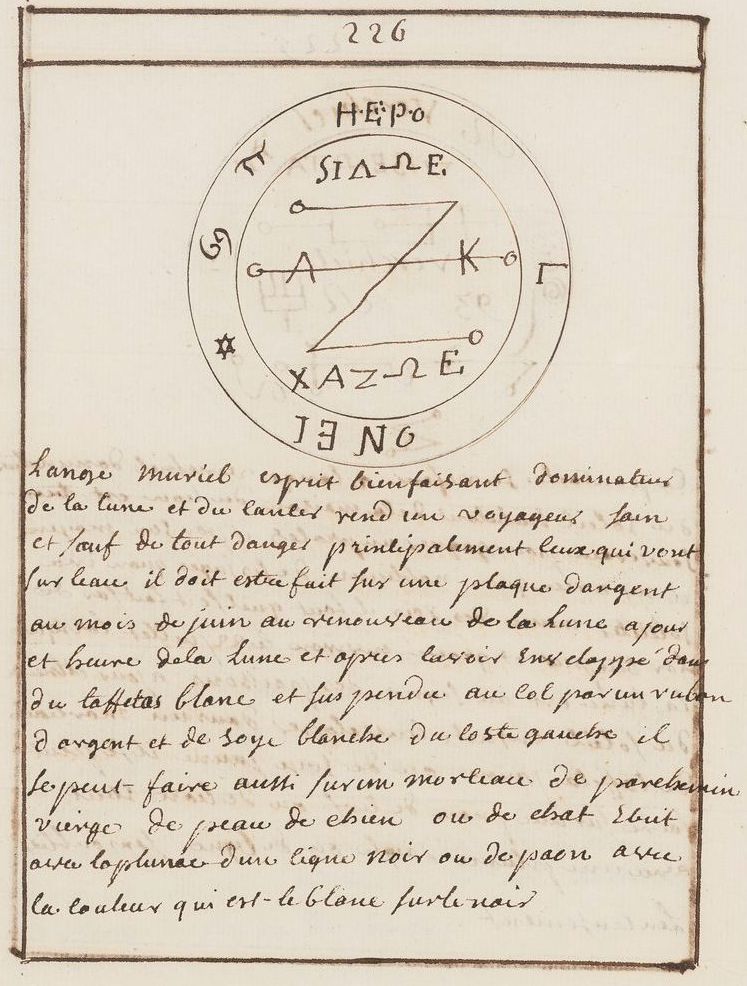 226
H·E·P·O
SIΔΩE
A K
Γ
XAZΩE
ONEI
Lange muriel esprit bienfaisant dominateur
de la lune et du cancer rend un voyageur sain
et sauf de tout danger principalement ceux qui vont
sur leau il doit estre fait sur une plaque dargent
au mois de juin au renouveau de la lune a jour
et heure dela lune et apres lavoir Enveloppé dans
du taffetas blanc et suspendu au col par un ruban
dargent et de soye blanche du costé gauche il
se peut faire aussi sur un morceau de parchemin
vierge de peau de chien ou de chat Ecrit
avec laplume dun cigne noir ou de paon avec
la couleur qui est le blanc sur le noir